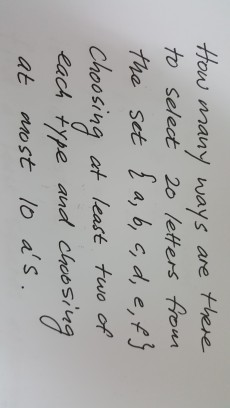 How many ways are there
to select 20 letters from
the set {a, b, c, d, e, f}
Choosing at least two of
each type and choosing
at most 10 a's.